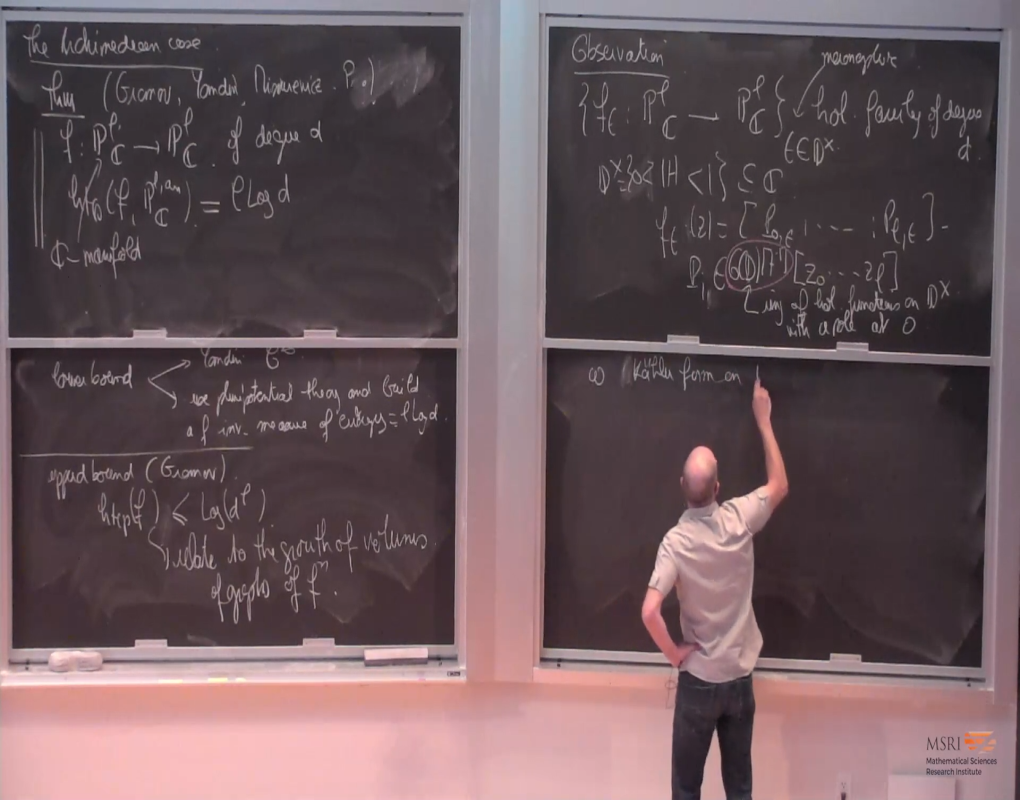 The Archimedean case
Thm (Gromov, Yomdin, Misiurewicz - P.)
f : P^l_C → P^l_C of degree d
htop(f, P^{l,an}_C) = l Log d
C-manifold
lower bound
Yomdin C^∞
use pluripotential theory and build
a f inv. measure of entropy = l Log d.
upper bound (Gromov).
htop(f) ≤ Log(d^l)
relate to the growth of volumes
of graphs of f^n.
Observation
meromorphic
{f_t : P^l_C → P^l_C} hol. family of degree
d.
t ∈ D^×
D^× = {0 < |t| < 1} ⊆ C
f_t(z) = [P_{0,t} : ... : P_{l,t}]
P_i ∈ O(D)[t^{-1}] [z_0 ... z_l]
ring of hol. functions on D^×
with a pole at 0
ω Kähler form on
MSRI
Mathematical Sciences
Research Institute